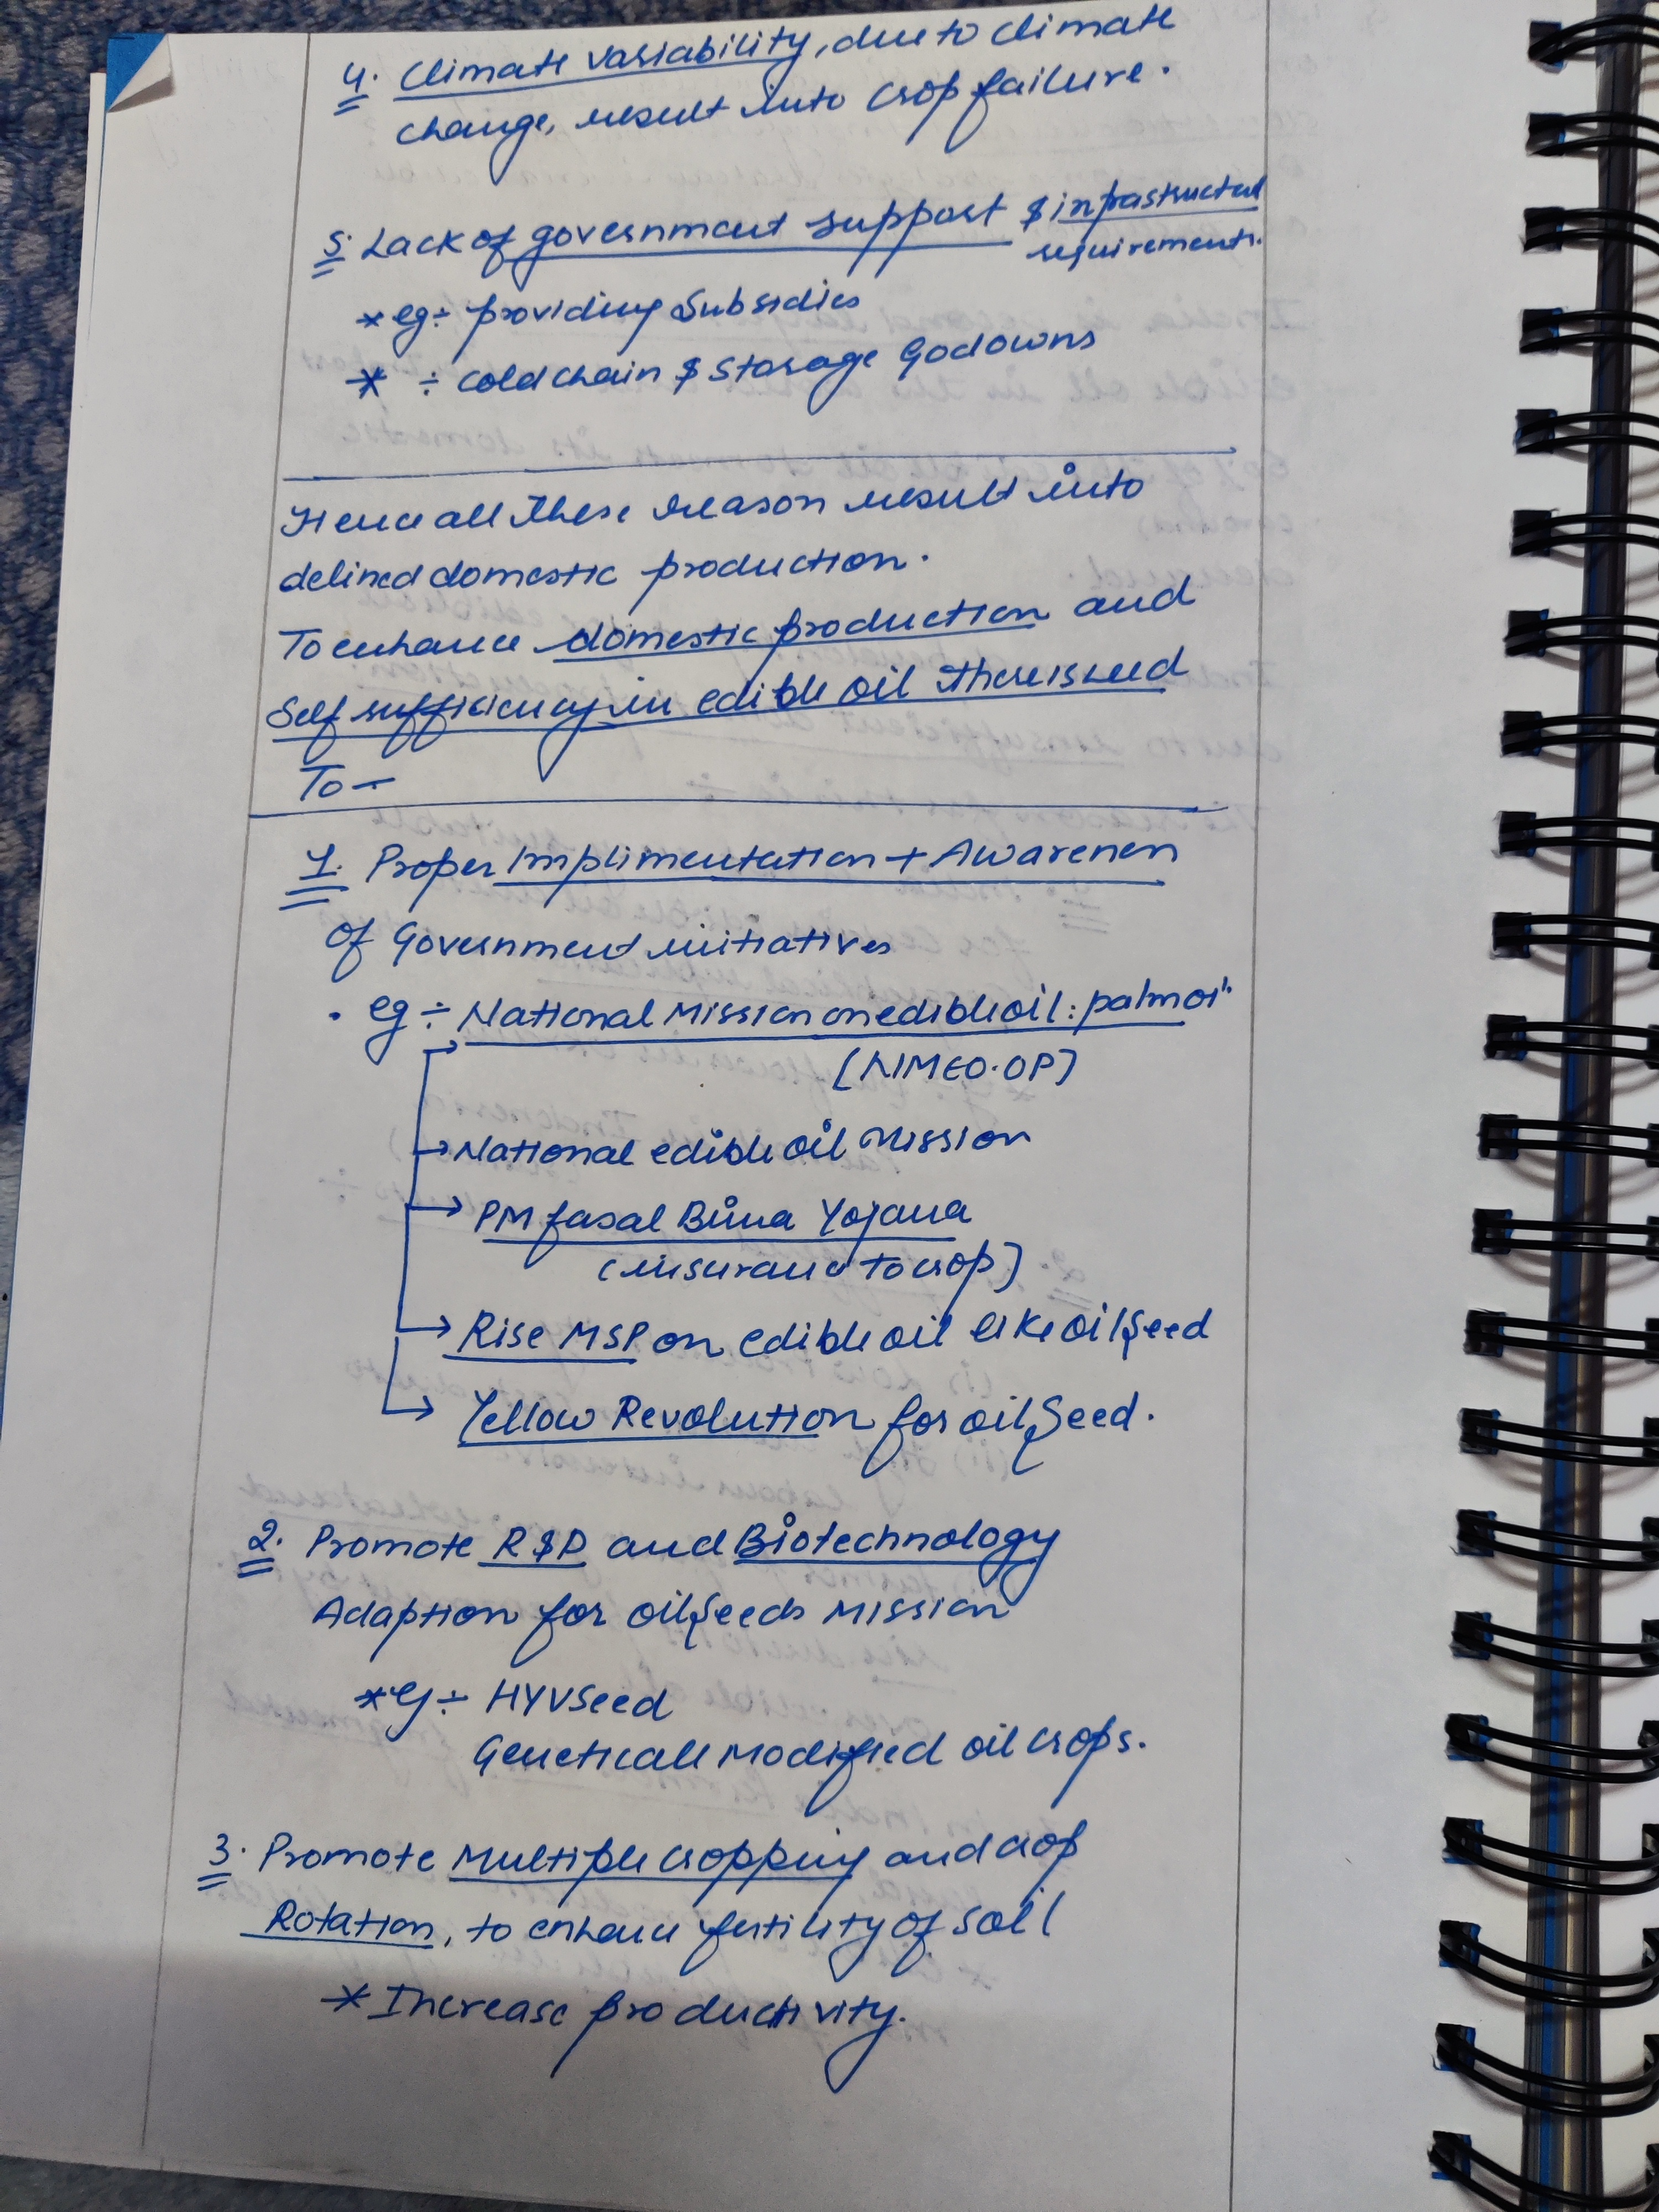 4. Climate variability, due to climate
change, result into crop failure.
5. Lack of government support & infrastructural
requirements.
* eg÷ providing Subsidies
* ÷ cold chain & Storage Godowns
Hence all these reason result into
delined domestic production.
To enhance domestic production and
Self sufficiency in edible oil there is need
To —
1. Proper Implimentation + Awareness
of Government initiatives
• eg ÷ National Mission on edible oil: palm oil
[NMEO.OP]
→ National edible oil Mission
→ PM fasal Bima Yojana
(insurance to crop)
→ Rise MSP on edible oil like oilseed
→ Yellow Revolution for oilseed.
2. Promote R&D and Biotechnology
Adaption for oilseeds Mission
* eg ÷ HYV Seed
Geneticall Modified oil crops.
3. Promote Multiple cropping and crop
Rotation, to enhance fertility of soil
* Increase productivity.